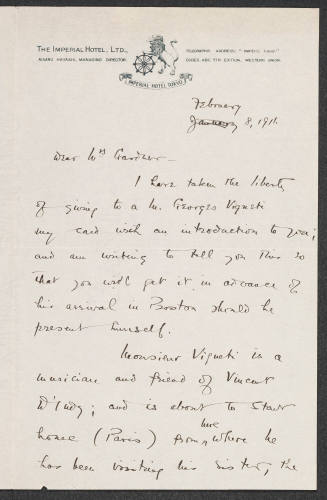 THE IMPERIAL HOTEL, LTD.,
AISAKU HAYASHI, MANAGING DIRECTOR.
TELEGRAPHIC ADDRESS: "IMPEHO, TOKIO."
CODES: ABC, 5TH EDITION, WESTERN UNION.
IMPERIAL HOTEL TOKYO
February
January 8, 1911.
Dear Mrs Gardner –
I have taken the liberty
of giving to a M. Georges Vigneti
my card with an introduction to you;
and am writing to tell you this so
that you will get it in advance of
his arrival in Boston should he
present himself.
Monsieur Vigneti is a
musician and friend of Vincent
D'Indy; and is about to start
home (Paris) from here, where he
has been visiting his sister, the